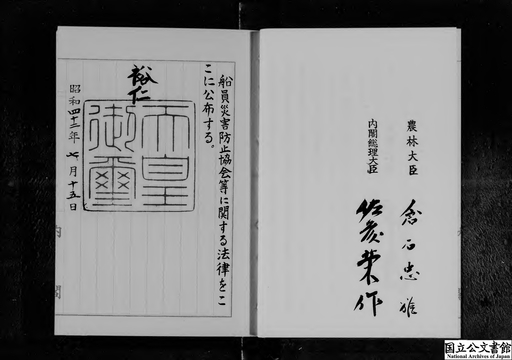 船員災害防止協会等に関する法律をこ
こに公布する。
裕仁
天皇
御璽
昭和四十二年七月十五日
内閣総理大臣 佐藤榮作
農林大臣 倉石忠雄
国立公文書館
National Archives of Japan